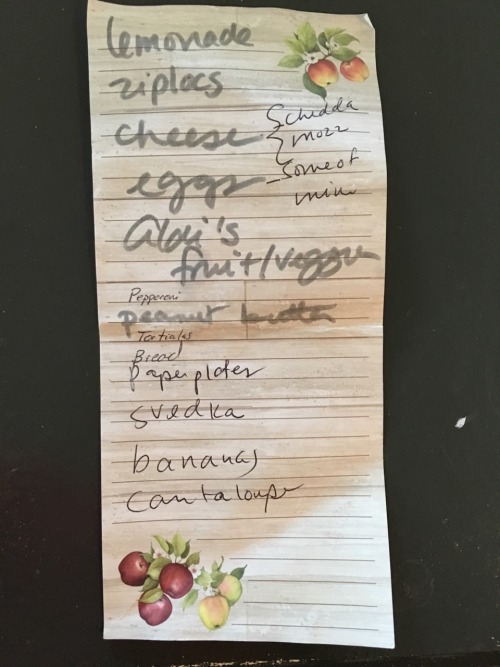 lemonade
ziplocs
cheese { chedda
mozz
eggs - some of
mine
Aldi's
fruit/veggie
Pepperoni
peanut butter
Tortialas
Bread
paper plates
svedka
bananas
cantaloupe